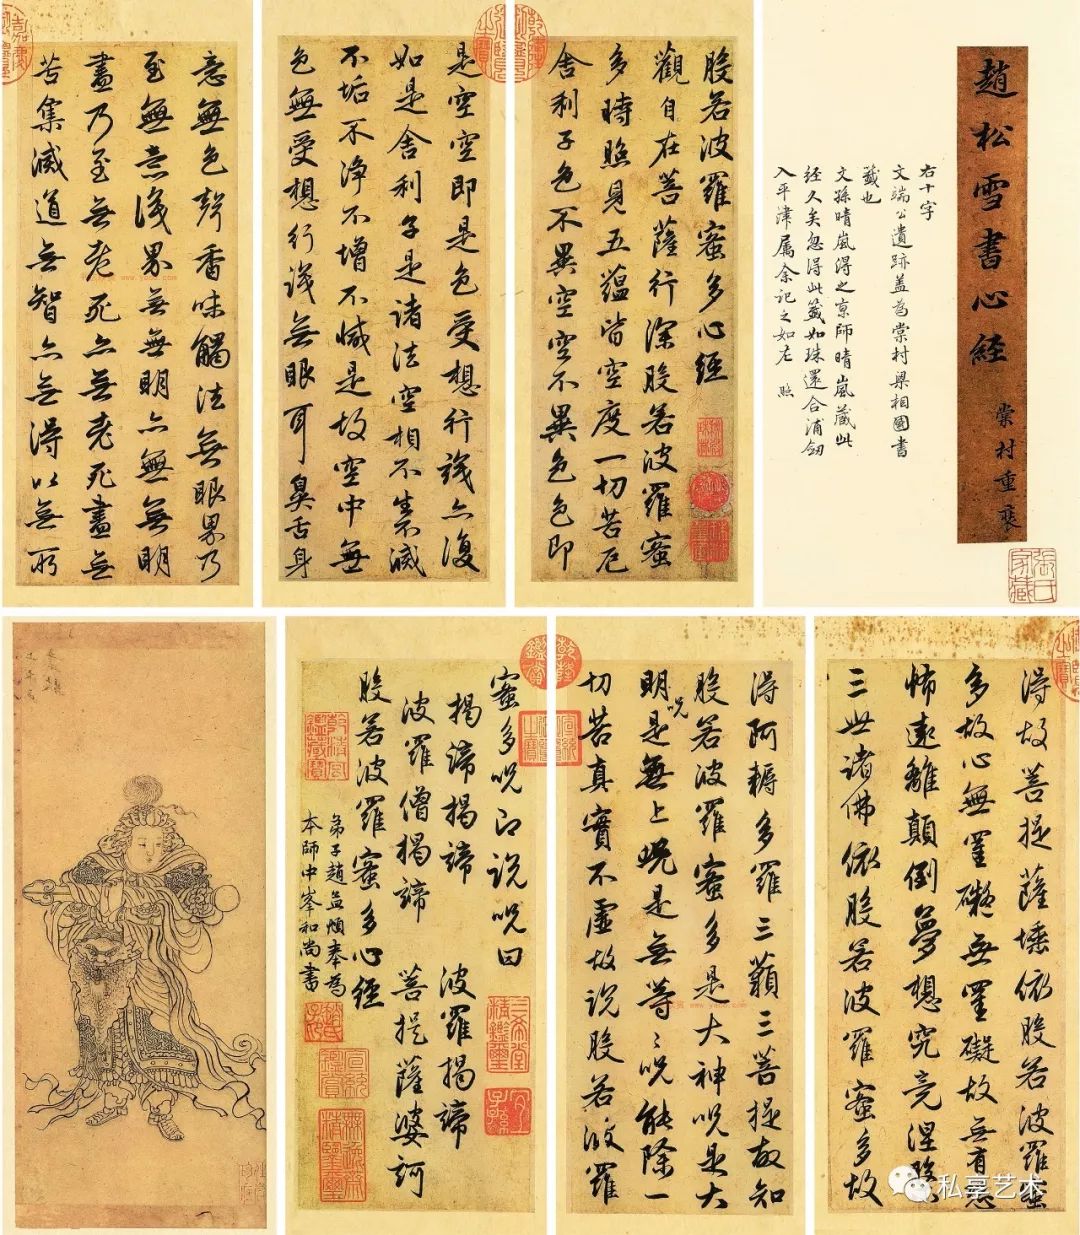 趙松雪書心經
棠村重裝
右十字
文端公遺跡蓋為棠村梁相國書
籤也
文孫晴嵐得之京師晴嵐藏此
經久矣忽得此籤如珠還合浦劍
入平津属余記之如左 照
張氏家藏
般若波羅蜜多心經
觀自在菩薩行深般若波羅蜜
多時照見五蘊皆空度一切苦厄
舍利子色不異空空不異色色即
是空空即是色受想行識亦復
如是舍利子是諸法空相不生不滅
不垢不淨不增不減是故空中無
色無受想行識無眼耳鼻舌身
意無色聲香味觸法無眼界乃
至無意識界無無明亦無無明
盡乃至無老死亦無老死盡無
苦集滅道無智亦無得以無所
得故菩提薩埵依般若波羅蜜
多故心無罣礙無罣礙故無有恐
怖遠離顛倒夢想究竟涅槃
三世諸佛依般若波羅蜜多故
得阿耨多羅三藐三菩提故知
般若波羅蜜多是大神呪是大
明呪是無上呪是無等等呪能除一
切苦真實不虛故說般若波羅
蜜多呪即說呪曰
揭諦揭諦 波羅揭諦
波羅僧揭諦 菩提薩婆訶
般若波羅蜜多心經
弟子趙孟頫奉為
本師中峯和尚書
乾隆鑑賞
乾隆御覽之寶
三希堂精鑑璽
宜子孫
宣統鑑賞
無逸齋精鑒璽
私享艺术